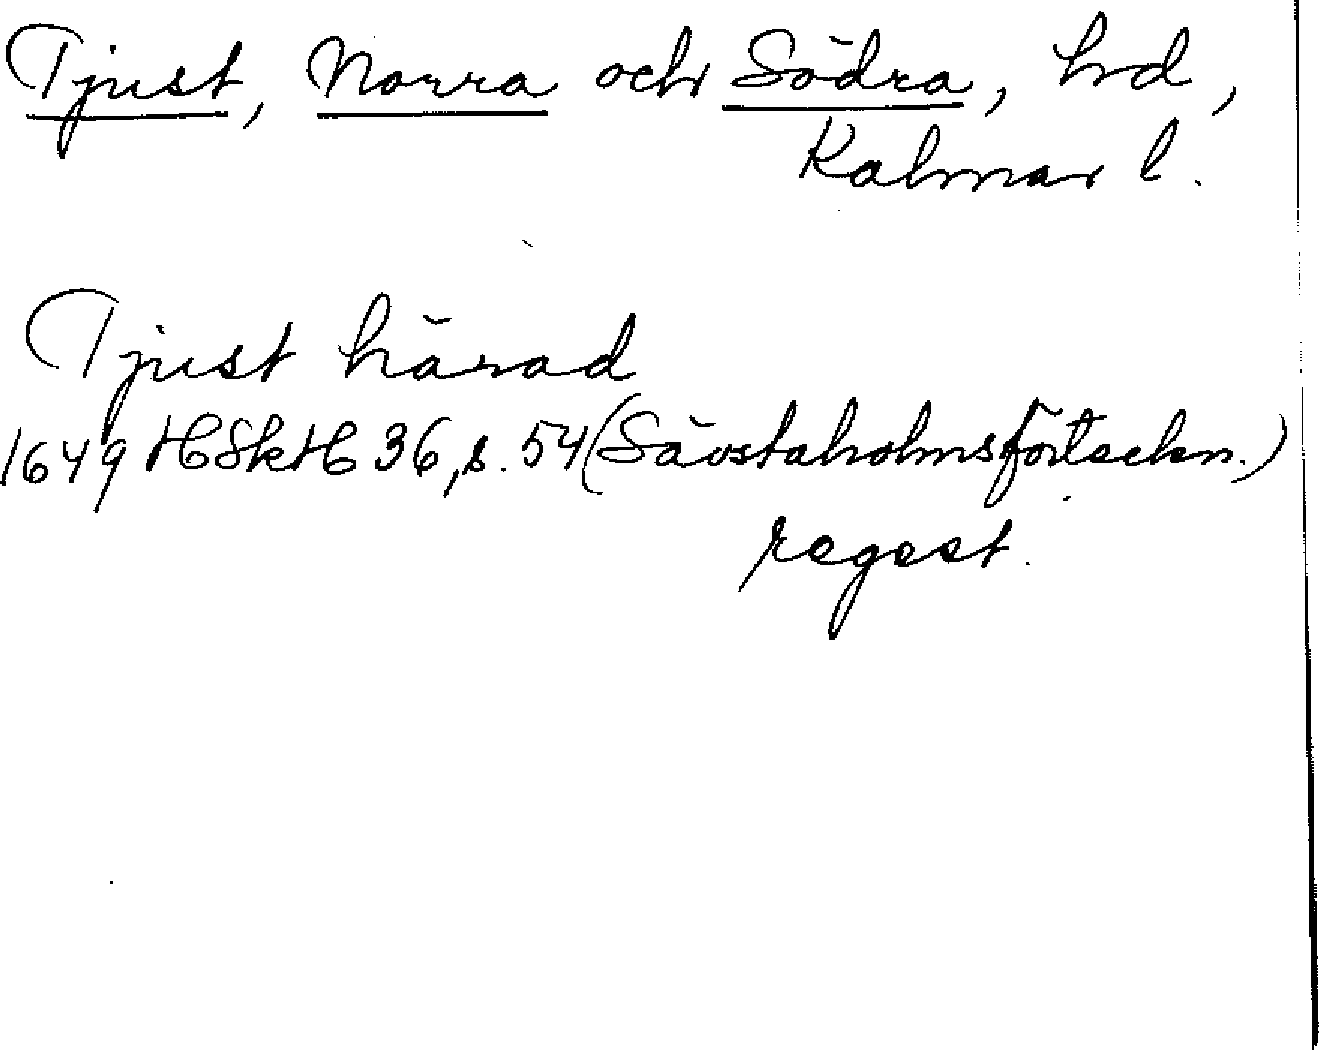 Tjust, Norra och Södra, hd,
Kalmar l.
Tjust härad
1649 HSkH 36, s. 54 (Sävstaholmsförteckn.)
regest.